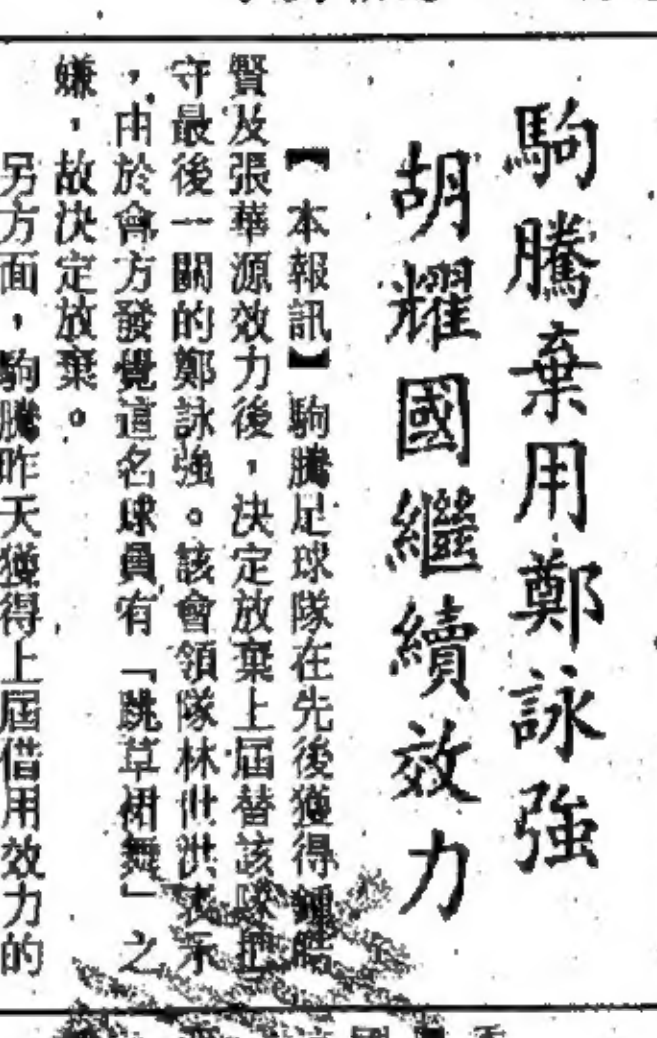 駒騰棄用鄭詠強
胡耀國繼續效力
【本報訊】駒騰足球隊在先後獲得鍾
賢及張華源效力後，決定放棄上屆替該隊把
守最後一關的鄭詠強。該會領隊林世洪表示
，由於會方發覺這名球員有「跳草裙舞」之
嫌，故決定放棄。
另方面，駒騰昨天獲得上屆借用效力的